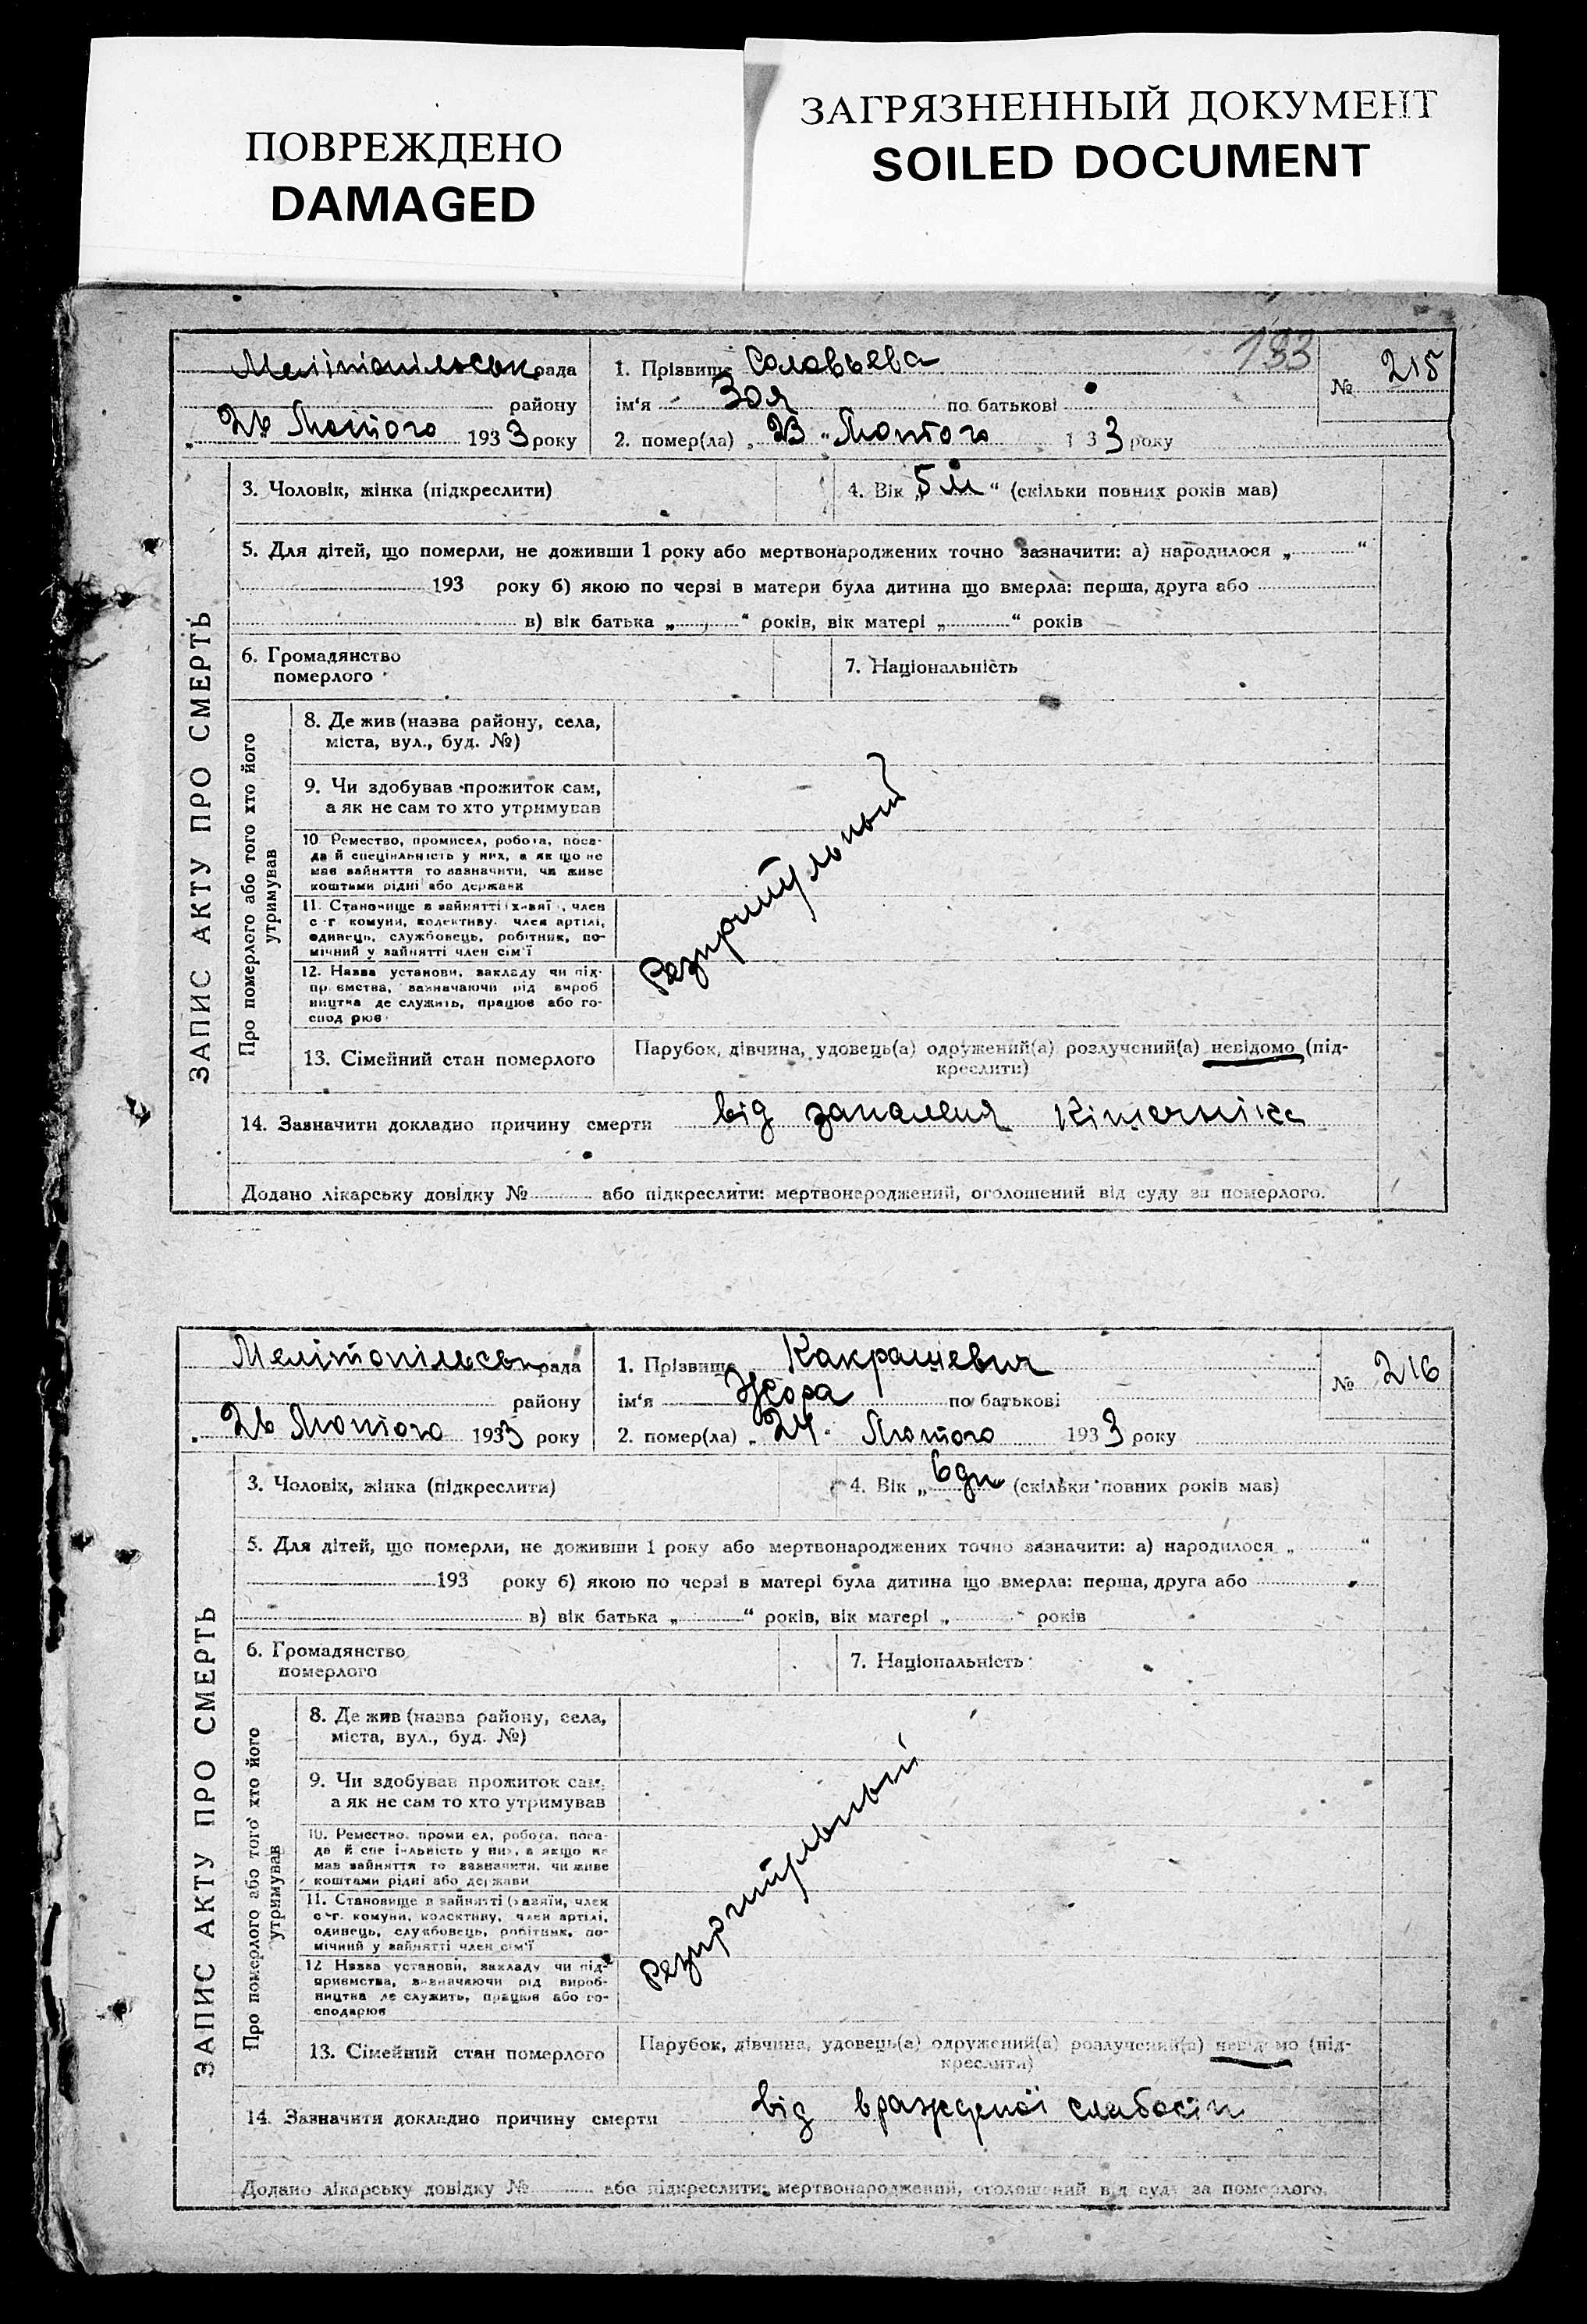 ПОВРЕЖДЕНО
DAMAGED
ЗАГРЯЗНЕННЫЙ ДОКУМЕНТ
SOILED DOCUMENT
193
Мелітопільськ рада
району
„ 26 Лютого 1933 року
1. Прізвище Соловьева
ім'я Зоя по батькові
2. помер(ла) „ 23 " Лютого 1 33 року
№ 215
ЗАПИС АКТУ ПРО СМЕРТЬ
3. Чоловік, жінка (підкреслити)
4. Вік „ 5 м " (скільки повних років мав)
5. Для дітей, що померли, не доживши 1 року або мертвонароджених точно зазначити: а) народилося „ "
193 року б) якою по черзі в матери була дитина що вмерла: перша, друга або
в) вік батька „ " років, вік матері „ " років
6. Громадянство
померлого
7. Національність
Про померлого або того хто його
утримував
8. Де жив (назва району, села,
міста, вул., буд. №)
9. Чи здобував прожиток сам,
а як не сам то хто утримував
10. Ремество, промисел, робота, поса-
да й спеціяльність у них, а як що не
мав зайняття то зазначити, чи живе
коштами рідні або держави
11. Становище в зайнятті (хазяї , член
с-г. комуни, колективу, член артілі,
одинець, службовець, робітник, по-
мічний у зайнятті член сім'ї
12. Назва установи, закладу чи під-
приємства, зазначаючи рід вироб
ництва де служить, працює або го-
спод рює
13. Сімейний стан померлого
Парубок, дівчина, удовець(а) одружений(а) розлучений(а) невідомо (під-
креслити)
14. Зазначити докладно причину смерти від запаленя
Додано лікарську довідку № або підкреслити: мертвонароджений, оголошений від суду за померлого.
Мелітопільськ рада
району
„ 26 Лютого 1933 року
1. Прізвище Какрашевич
ім'я Жора по батькові
2. помер(ла) „ 24 Лютого 1933 року
№ 216
ЗАПИС АКТУ ПРО СМЕРТЬ
3. Чоловік, жінка (підкреслити)
4. Вік „ 6 дн (скільки повних років мав)
5. Для дітей, що померли, не доживши 1 року або мертвонароджених точно зазначити: а) народилося „ "
193 року б) якою по черзі в матері була дитина що вмерла: перша, друга або
в) вік батька „ " років, вік матері „ " років
6. Громадянство
померлого
7. Національність
Про померлого або того хто його
утримував
8. Де жив (назва району, села,
міста, вул., буд. №)
9. Чи здобував прожиток сам,
а як не сам то хто утримував
10. Ремество, проми ел, робота, поса-
да й спе і-льність у них, а якщо не
мав зайняття то зазначити, чи живе
коштами рідні або держави
11. Становище в зайнятті (хазяїн, член
с-г. комуни, колективу, член артілі,
одинець, службовець, робітник, по-
мічний у зайнятті член сім'ї
12 Назва установи, закладу чи під-
приємства, зазначаючи рід вироб-
ництва де служить, працює або го-
сподарює
13. Сімейний стан померлого
Парубок, дівчина, удовець(а) одружений(а) розлучений(а) невідомо (під-
креслити)
14. Зазначити докладно причину смерти від врожденої слабости
Додано лікарську довідку № або підкреслити: мертвонароджений, оголошений від суду за померлого.